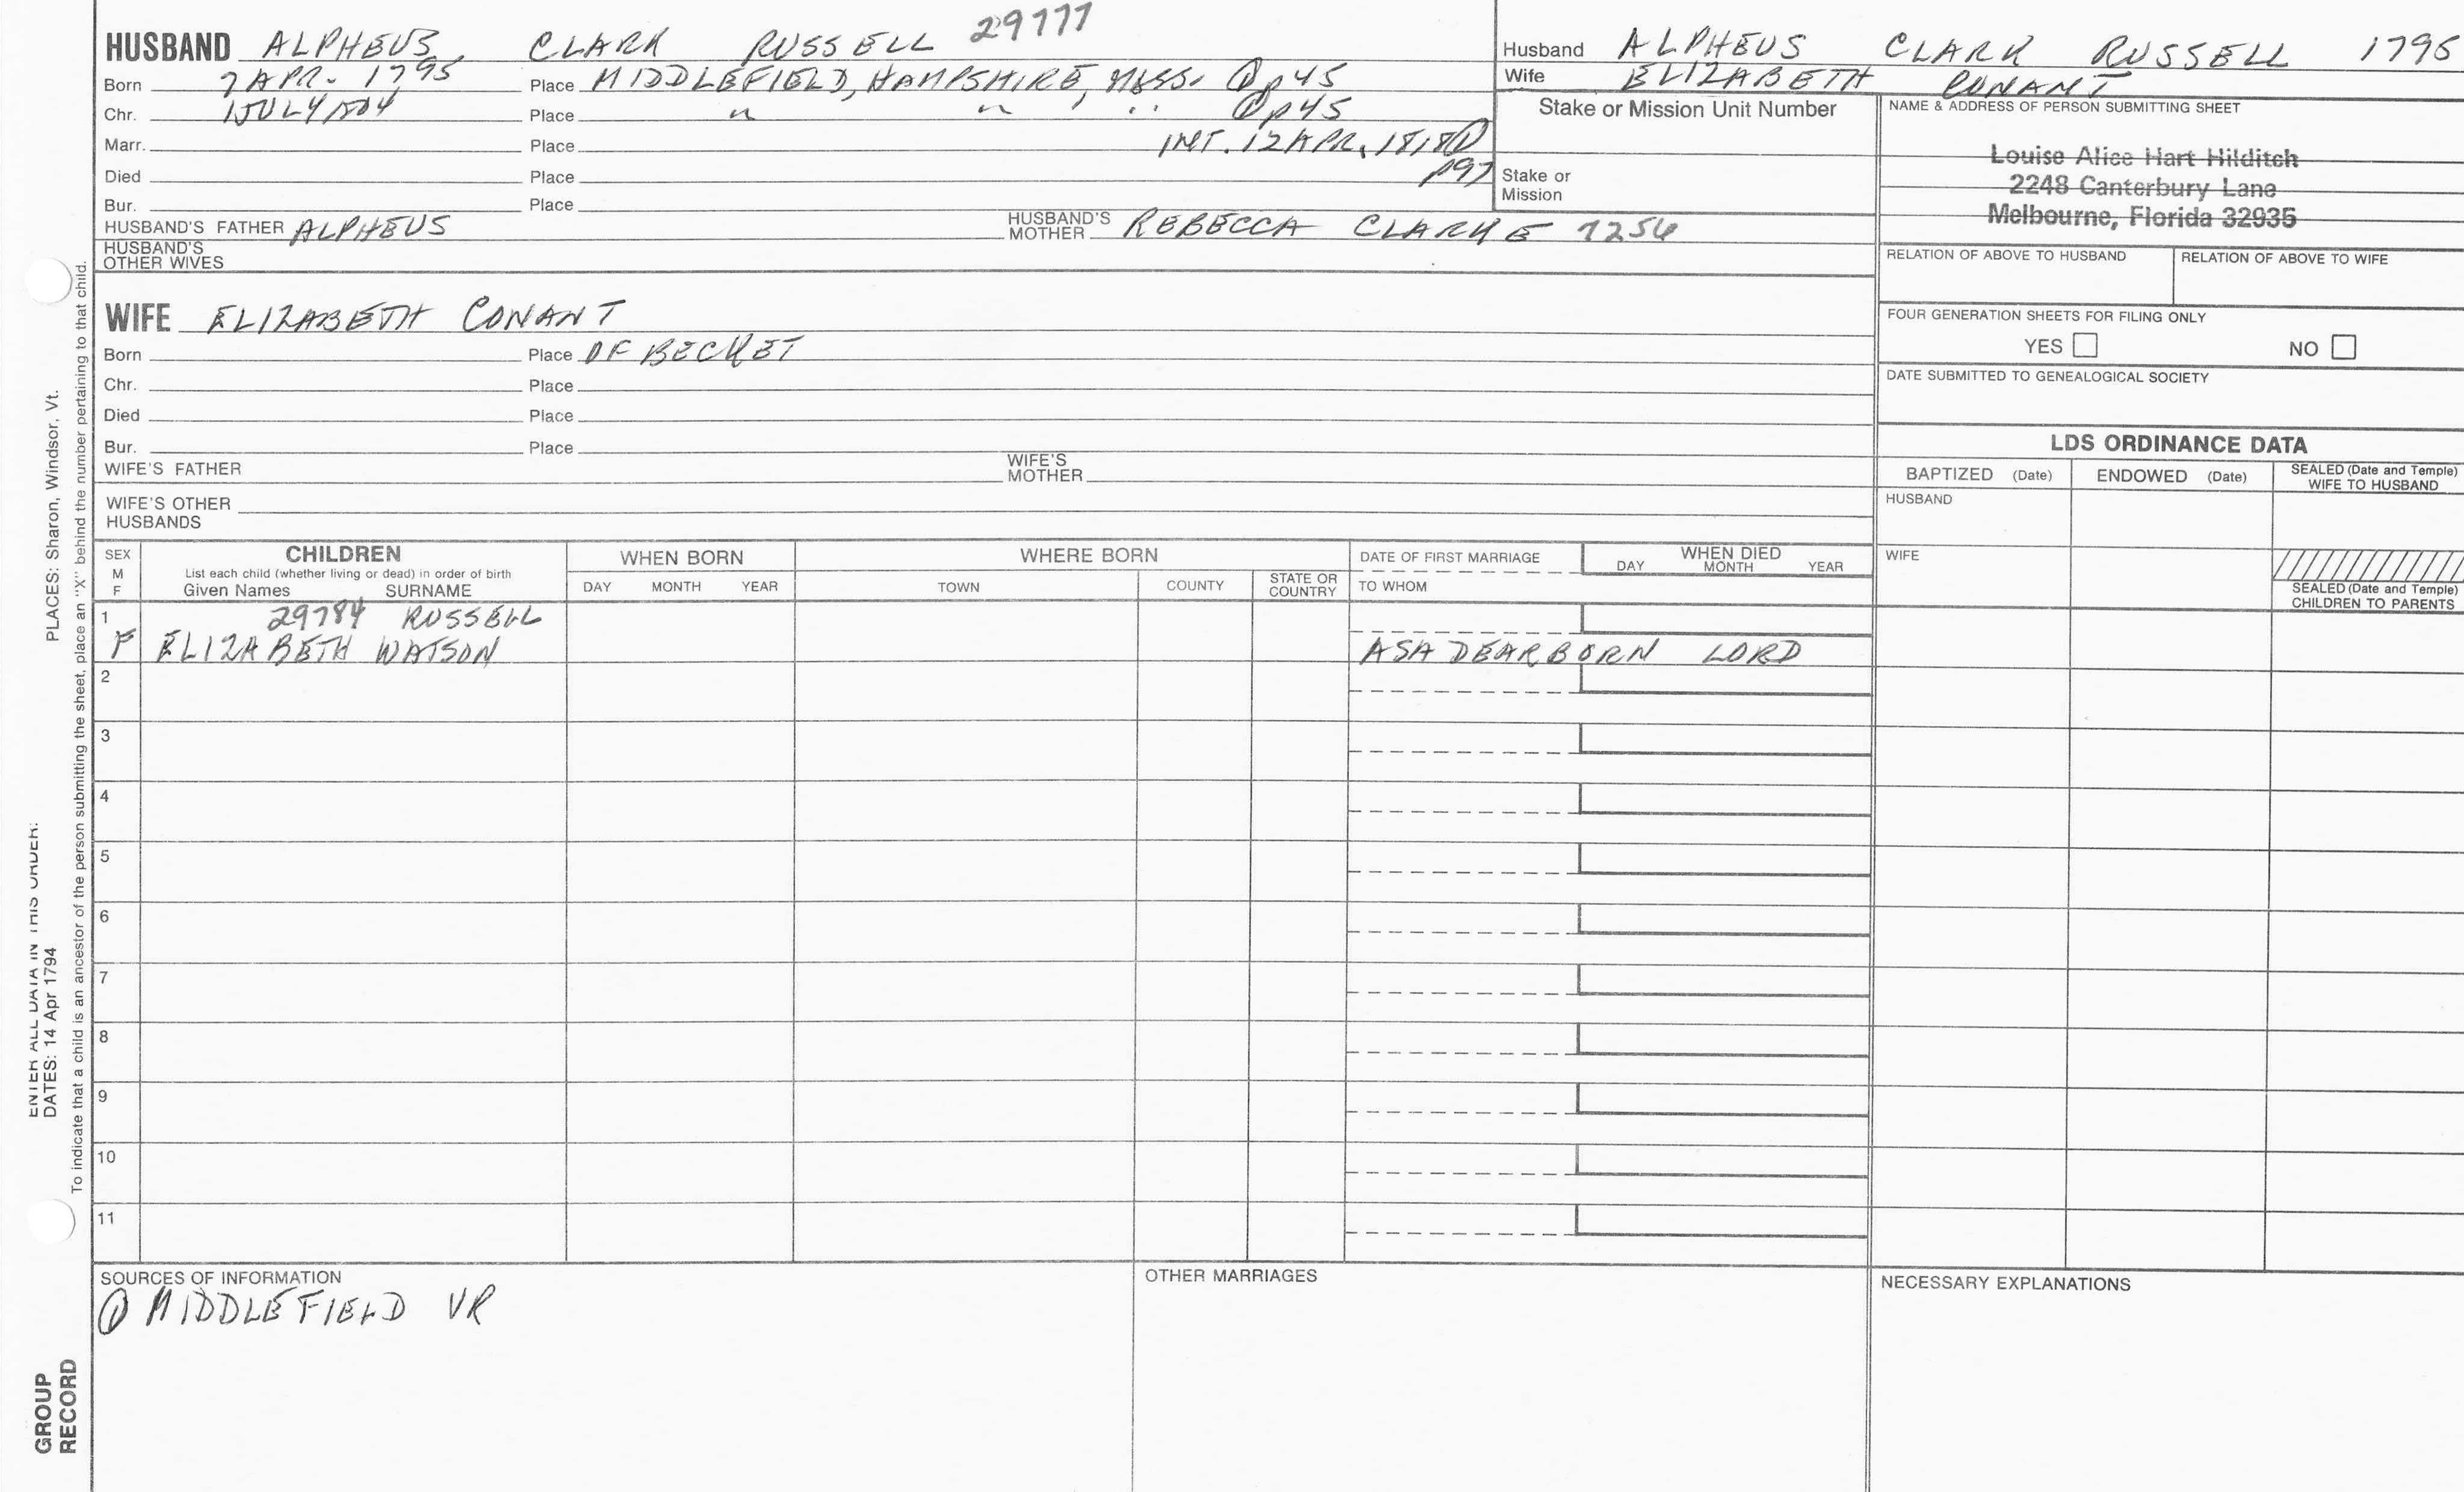 HUSBAND ALPHEUS CLARK RUSSELL 29777
Born 7 APR. 1795 Place MIDDLEFIELD, HAMPSHIRE, MASS. ① p45
Chr. 1 JULY 1804 Place " " " ① p45
Marr. Place INT. 12 APR, 1818 ①
Died Place p97
Bur. Place
HUSBAND'S FATHER ALPHEUS HUSBAND'S MOTHER REBECCA CLARKE 7254
HUSBAND'S OTHER WIVES
WIFE ELIZABETH CONANT
Born Place OF BECKET
Chr. Place
Died Place
Bur. Place
WIFE'S FATHER WIFE'S MOTHER
WIFE'S OTHER HUSBANDS
Husband ALPHEUS CLARK RUSSELL 1795
Wife ELIZABETH CONANT
Stake or Mission Unit Number
Stake or Mission
NAME & ADDRESS OF PERSON SUBMITTING SHEET
Louise Alice Hart Hilditch
2248 Canterbury Lane
Melbourne, Florida 32935
RELATION OF ABOVE TO HUSBAND RELATION OF ABOVE TO WIFE
FOUR GENERATION SHEETS FOR FILING ONLY
YES NO
DATE SUBMITTED TO GENEALOGICAL SOCIETY
LDS ORDINANCE DATA
BAPTIZED (Date) ENDOWED (Date) SEALED (Date and Temple) WIFE TO HUSBAND
HUSBAND
WIFE
SEALED (Date and Temple) CHILDREN TO PARENTS
SEX M F
CHILDREN
List each child (whether living or dead) in order of birth
Given Names SURNAME
WHEN BORN
DAY MONTH YEAR
WHERE BORN
TOWN COUNTY STATE OR COUNTRY
DATE OF FIRST MARRIAGE
TO WHOM
WHEN DIED
DAY MONTH YEAR
1 29784 RUSSELL
F ELIZABETH WATSON ASA DEARBORN LORD
2
3
4
5
6
7
8
9
10
11
SOURCES OF INFORMATION
① MIDDLEFIELD VR
OTHER MARRIAGES
NECESSARY EXPLANATIONS
ENTER ALL DATA IN THIS ORDER:
DATES: 14 Apr 1794 PLACES: Sharon, Windsor, Vt.
To indicate that a child is an ancestor of the person submitting the sheet, place an "X" behind the number pertaining to that child.
GROUP
RECORD